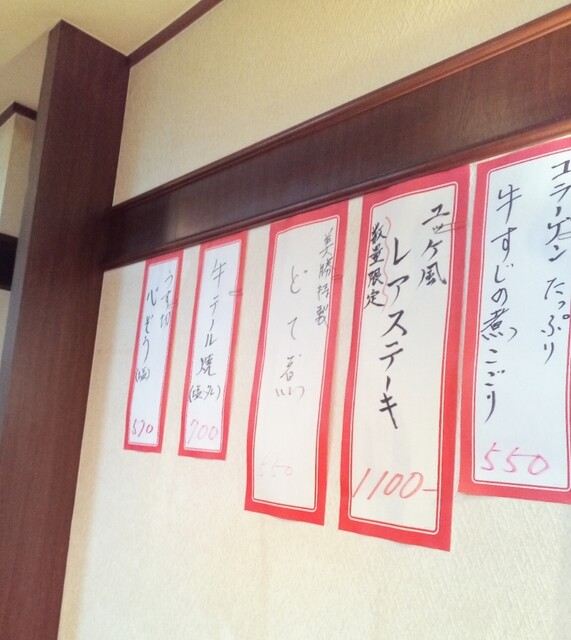 コラーゲンたっぷり
牛すじの煮こごり
550
ユッケ風
レアステーキ
数量限定
1100-
美勝特製
どて煮
550
牛テール焼
(塩・タレ)
700
うす切
心ぞう(塩)
590